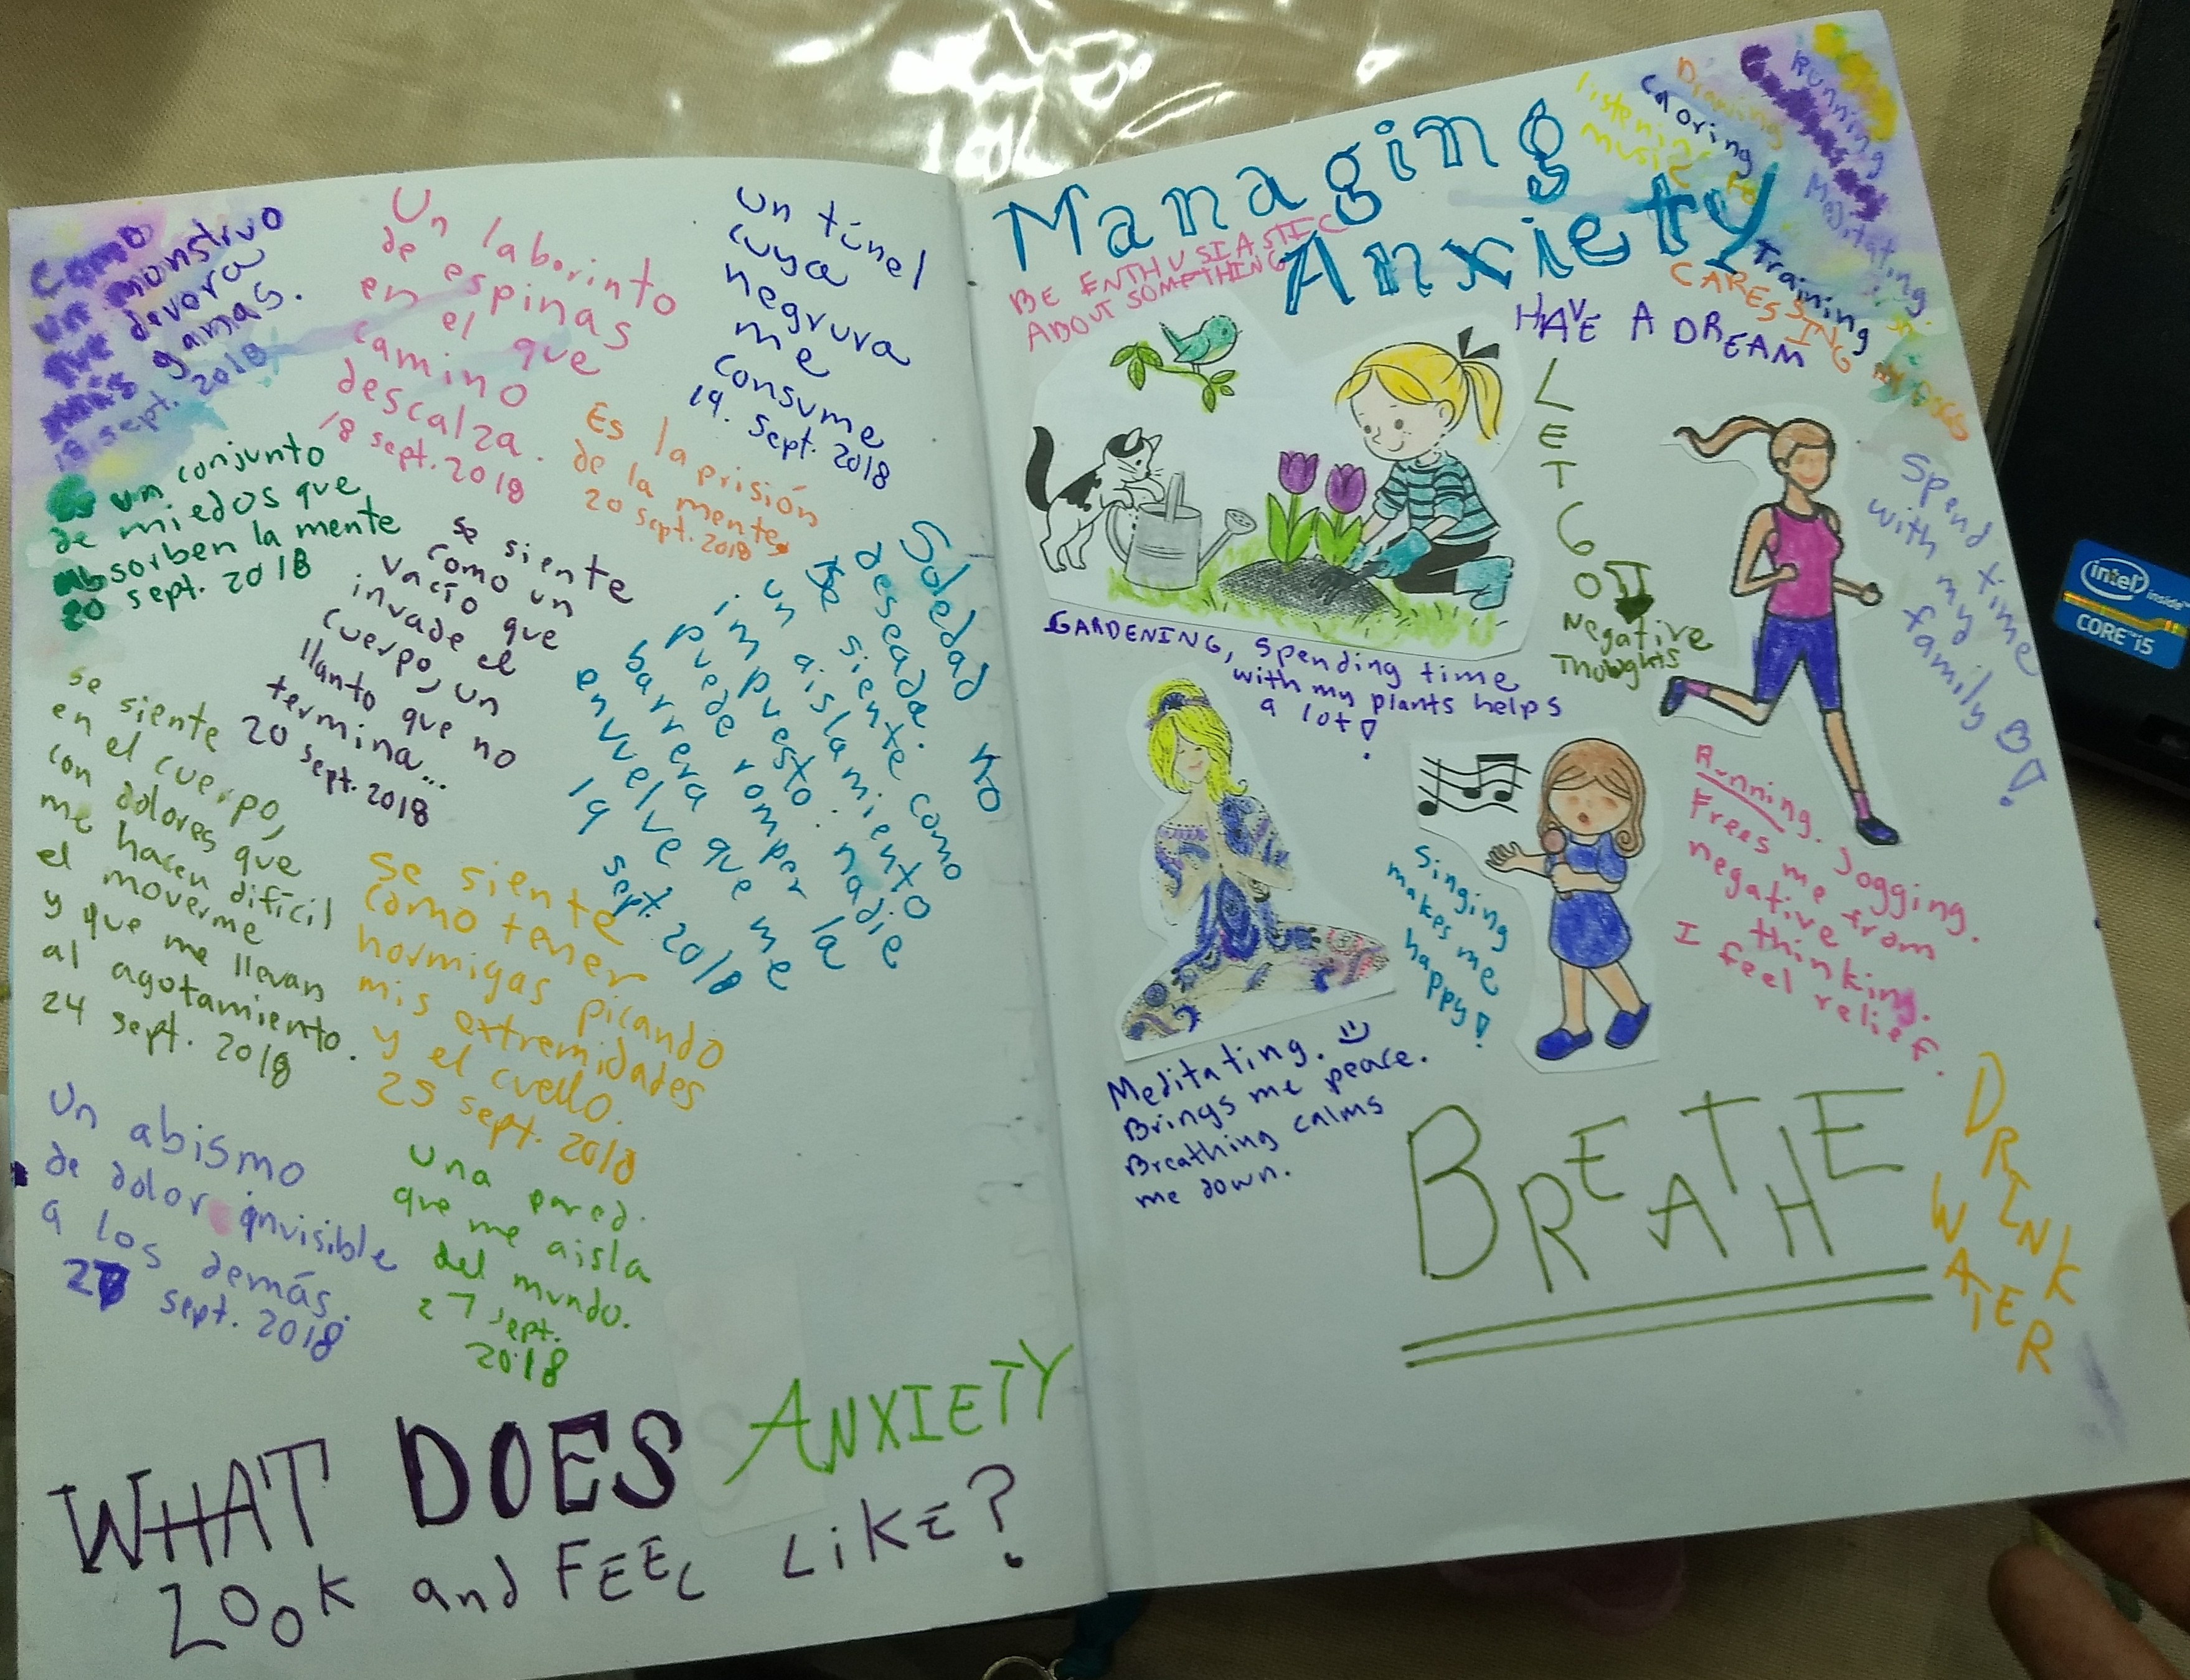 Como
un monstruo
que devora
mis ganas.
18 sept. 2018
Un laborinto
de espinas
en el que
camino
descalza.
18 sept. 2018
un túnel
cuya
negrura
me
consume
19. sept. 2018
Es la prisión
de la mente.
20 sept. 2018
un conjunto
de miedos que
absorben la mente
20 sept. 2018
se siente
como un
vacío que
invade el
cuerpo, un
llanto que no
termina...
20 sept. 2018
Soledad no
deseada.
Se siente como
un aislamiento
impuesto. nadie
puede romper la
barrera que me
envuelve
19 sept. 2018
se siente
en el cuerpo,
con dolores que
me hacen difícil
el moverme
y que me llevan
al agotamiento.
24 sept. 2018
se siente
como tener
hormigas picando
mis extremidades
y el cuello.
25 sept. 2018
Un abismo
de dolor invisible
a los demás.
sept. 2018
una pared.
que me aisla
del mundo.
27 sept.
2018
WHAT DOES ANXIETY
LOOK and FEEL LIKE?
Managing
Anxiety
BE ENTHUSIASTIC
ABOUT SOMETHING
listening
music
Coloring
Drawing
Running
Meditating
Training
CARESSING
HAVE A DREAM
LET GO
Negative
Thoughts
Spend time
with my
family
GARDENING, Spending time
with my plants helps
a lot!
Running. Jogging.
Frees me from
negative
thinking.
I feel relief.
Singing
makes me
happy!
Meditating.
Brings me peace.
Breathing calms
me down.
BREATHE
DRINK
WATER
intel inside
CORE i5